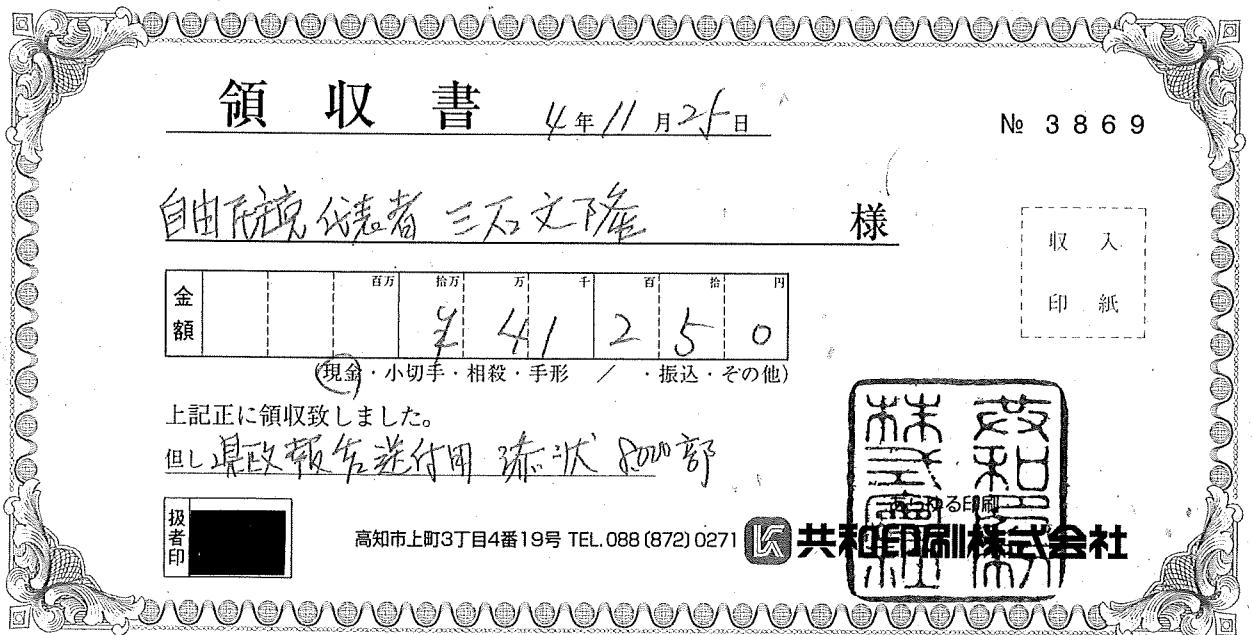 領収書 4年11月25日
№ 3869
自由民主党 代表者 三石文隆 様
収入
印紙
金額 百万 拾万 万 千 百 拾 円
¥41250
(現金・小切手・相殺・手形 / ・振込・その他)
上記正に領収致しました。
但し 県政報告送付用 添状 8000部
扱者印
あらゆる印刷
高知市上町3丁目4番19号 TEL.088(872)0271 共和印刷株式会社